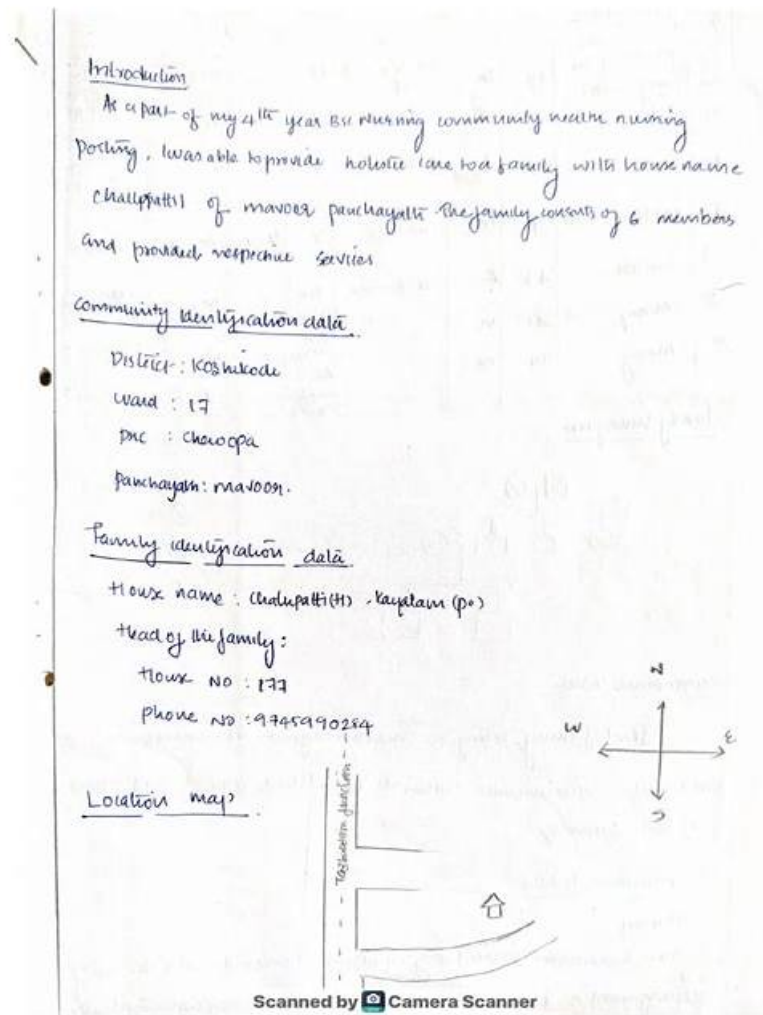 Introduction
As a part of my 4th year BSc Nursing community health nursing
posting, I was able to provide holistic care to a family with house name
challppattil of mavoor panchayath The family consists of 6 members
and provided respective services
Community identification data
District : Kozhikode
ward : 17
PHC : Cheroopa
panchayath : mavoor.
Family identification data
House name : Chalupatti (H) , Kayalam (po)
Head of the family :
House No : 177
Phone No : 9745990284
N
W
E
S
Location map
junction
Scanned by Camera Scanner